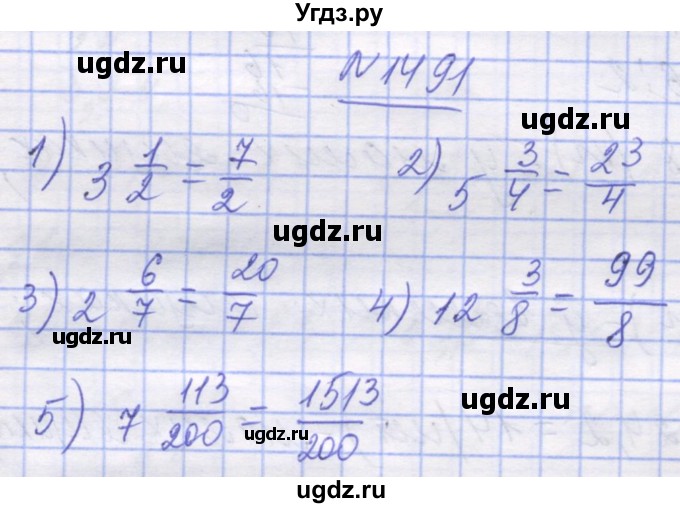 Угдз.ру
ugdz.ru ugdz.ru
N 1491
ugdz.ru
1) 3 1/2 = 7/2 2) 5 3/4 = 23/4
ugdz.ru ugdz.ru
3) 2 6/7 = 20/7 4) 12 3/8 = 99/8
ugdz.ru
ugdz.ru ugdz.ru
5) 7 113/200 = 1513/200
ugdz.ru
ugdz.ru